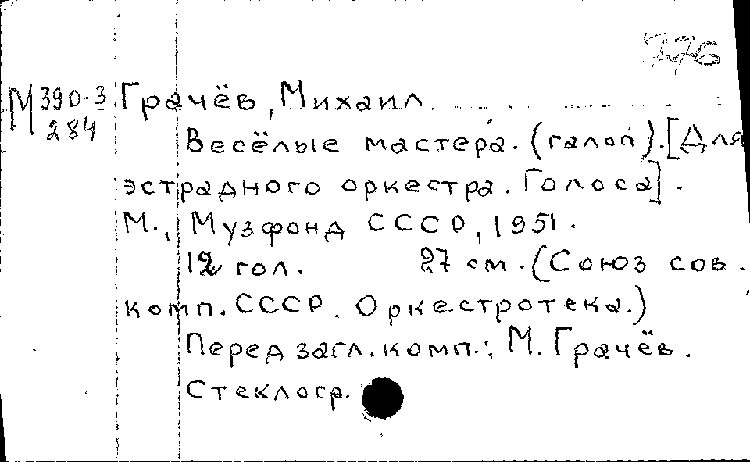 776
М 390-3
284
Грачёв, Михаил
Весёлые мастера. (галоп). [Для
эстрадного оркестра. Голоса].
М., Музфонд СССР, 1951.
12 гол. 27 см. (Союз сов.
комп. СССР. Оркестротека.)
Перед загл. комп.: М. Грачёв.
Стеклогр.